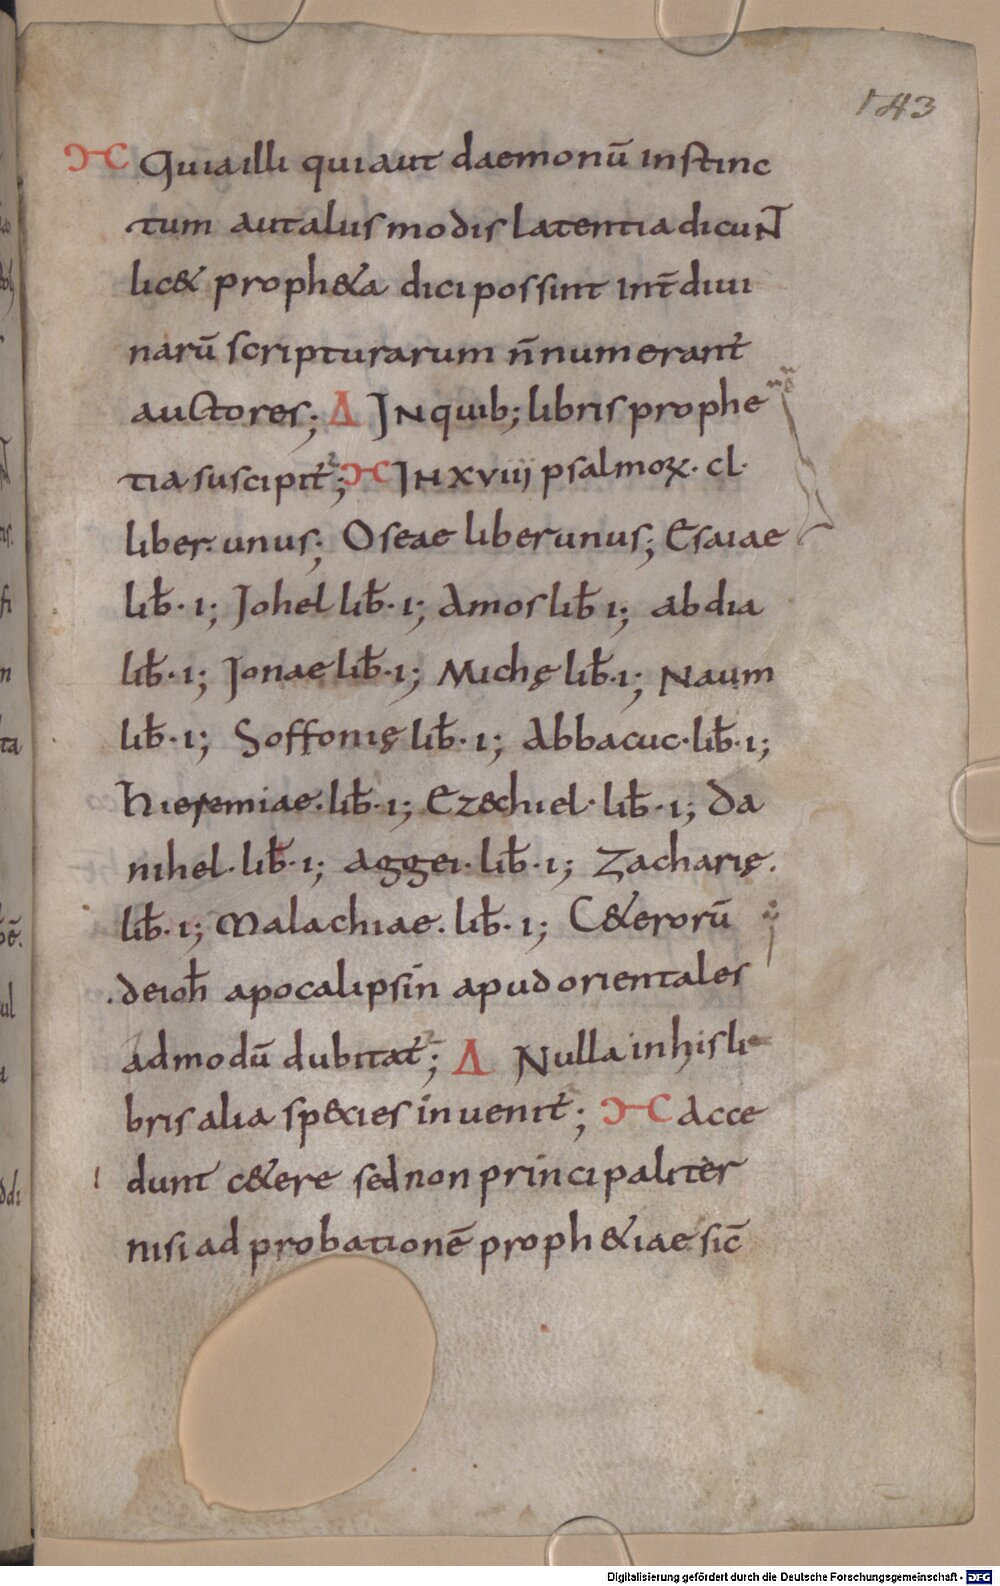 143
Quia illi qui aut daemonū instinc
tum aut alus modis latentia dicuNT
lic& proph&a dici possint int̄ diui
narū scripturarum n̄ numerant̄
auctores; Δ IN quib; libris prophe
tia suscipit̄; IN XVIII psalmoꝝ · cl ·
liber · unus; Oseae liber unus; Esaiae
lib̄ · I; Johel lib̄ · I; Amos lib̄ I; abdia
lib̄ · I; Jonae lib̄ · I; Michę lib̄ · I; Naum
lib̄ · I; Soffonię lib̄ · I; Abbacuc · lib̄ · I;
hieremiae · lib̄ · I; Ez&chiel · lib̄ · I; Da
nihel · lib̄ · I; aggei · lib̄ · I; Zacharię ·
lib̄ · I; Malachiae · lib̄ · I; C&erorū
· de ioh̄ apocalipsin apud orientales
admodū dubitat̄; Δ Nulla in his li
bris alia sp&cies inuenit̄; Acce
dunt c&ere sed non principaliter
nisi ad probationē proph&iae sic̄
Digitalisierung gefördert durch die Deutsche Forschungsgemeinschaft - DFG